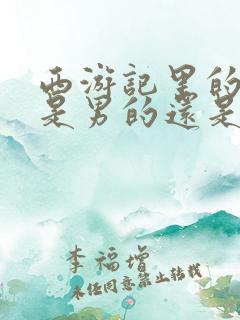 西游記里的
是男的還是
李福增
未经同意禁止转载